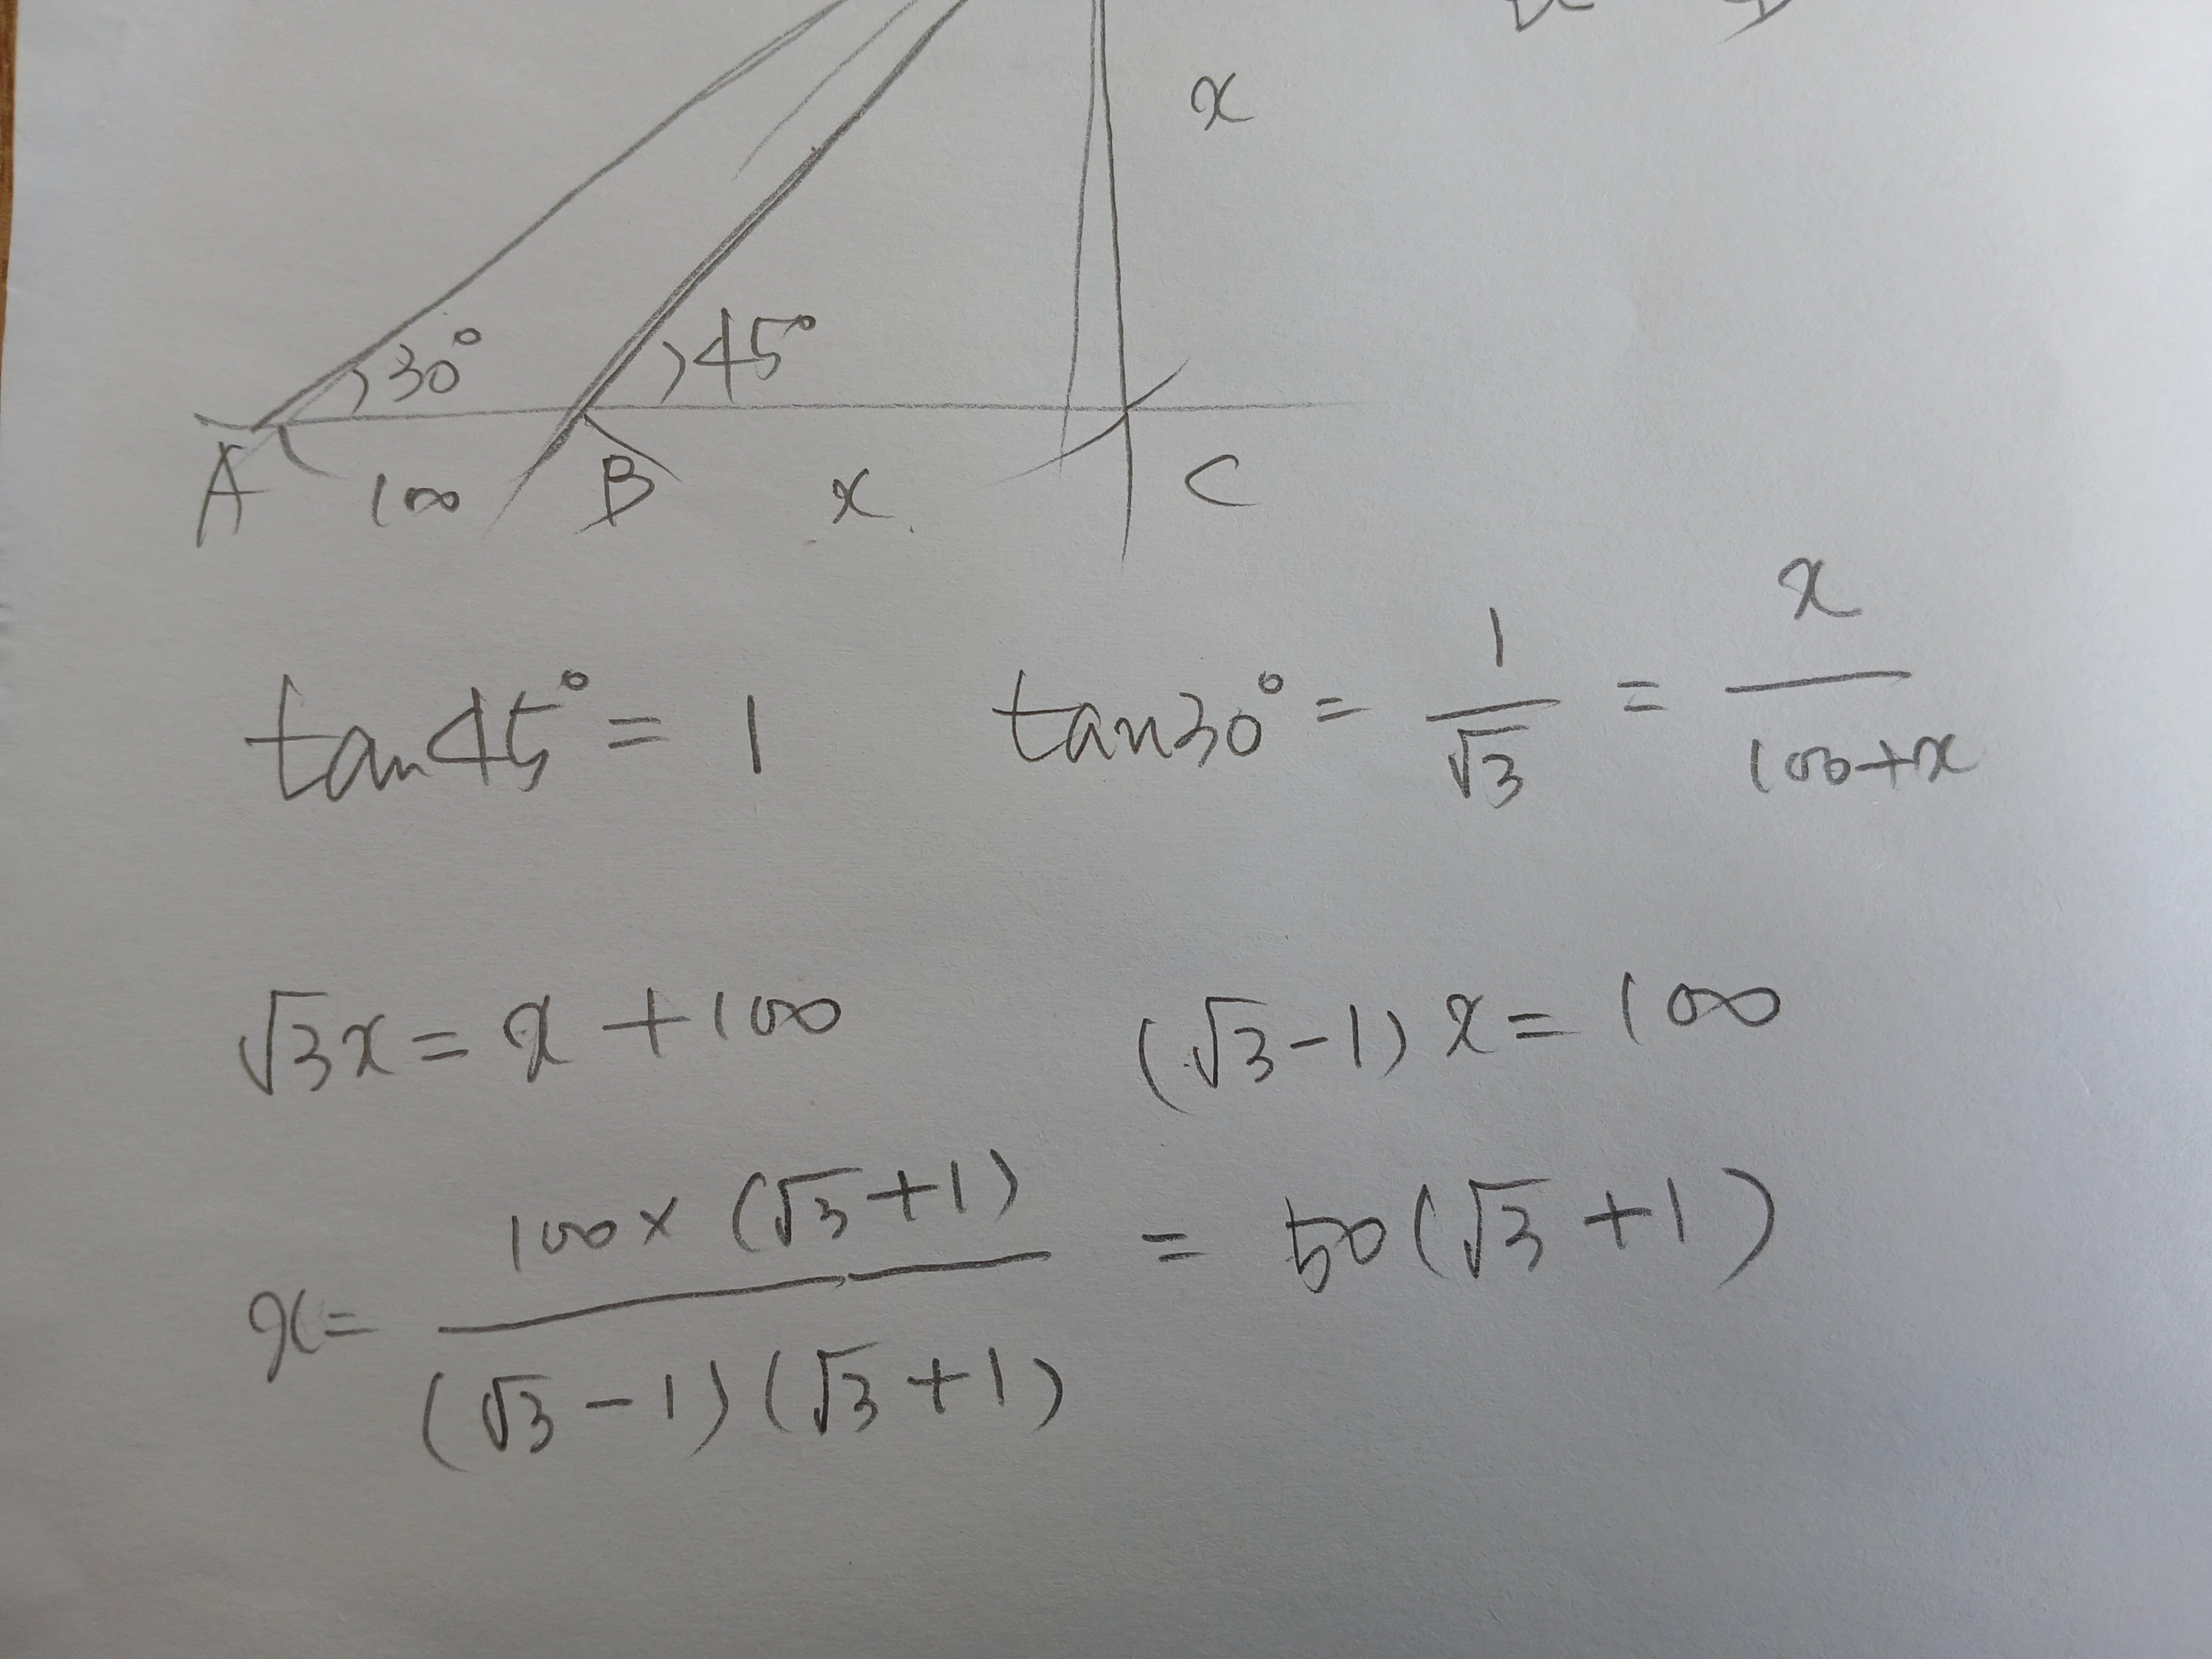 x
30° 45°
A 100 B x C
tan45° = 1 tan30° = 1/√3 = x/(100+x)
√3x = x + 100 (√3-1)x = 100
x = 100×(√3+1)/((√3-1)(√3+1)) = 50(√3+1)